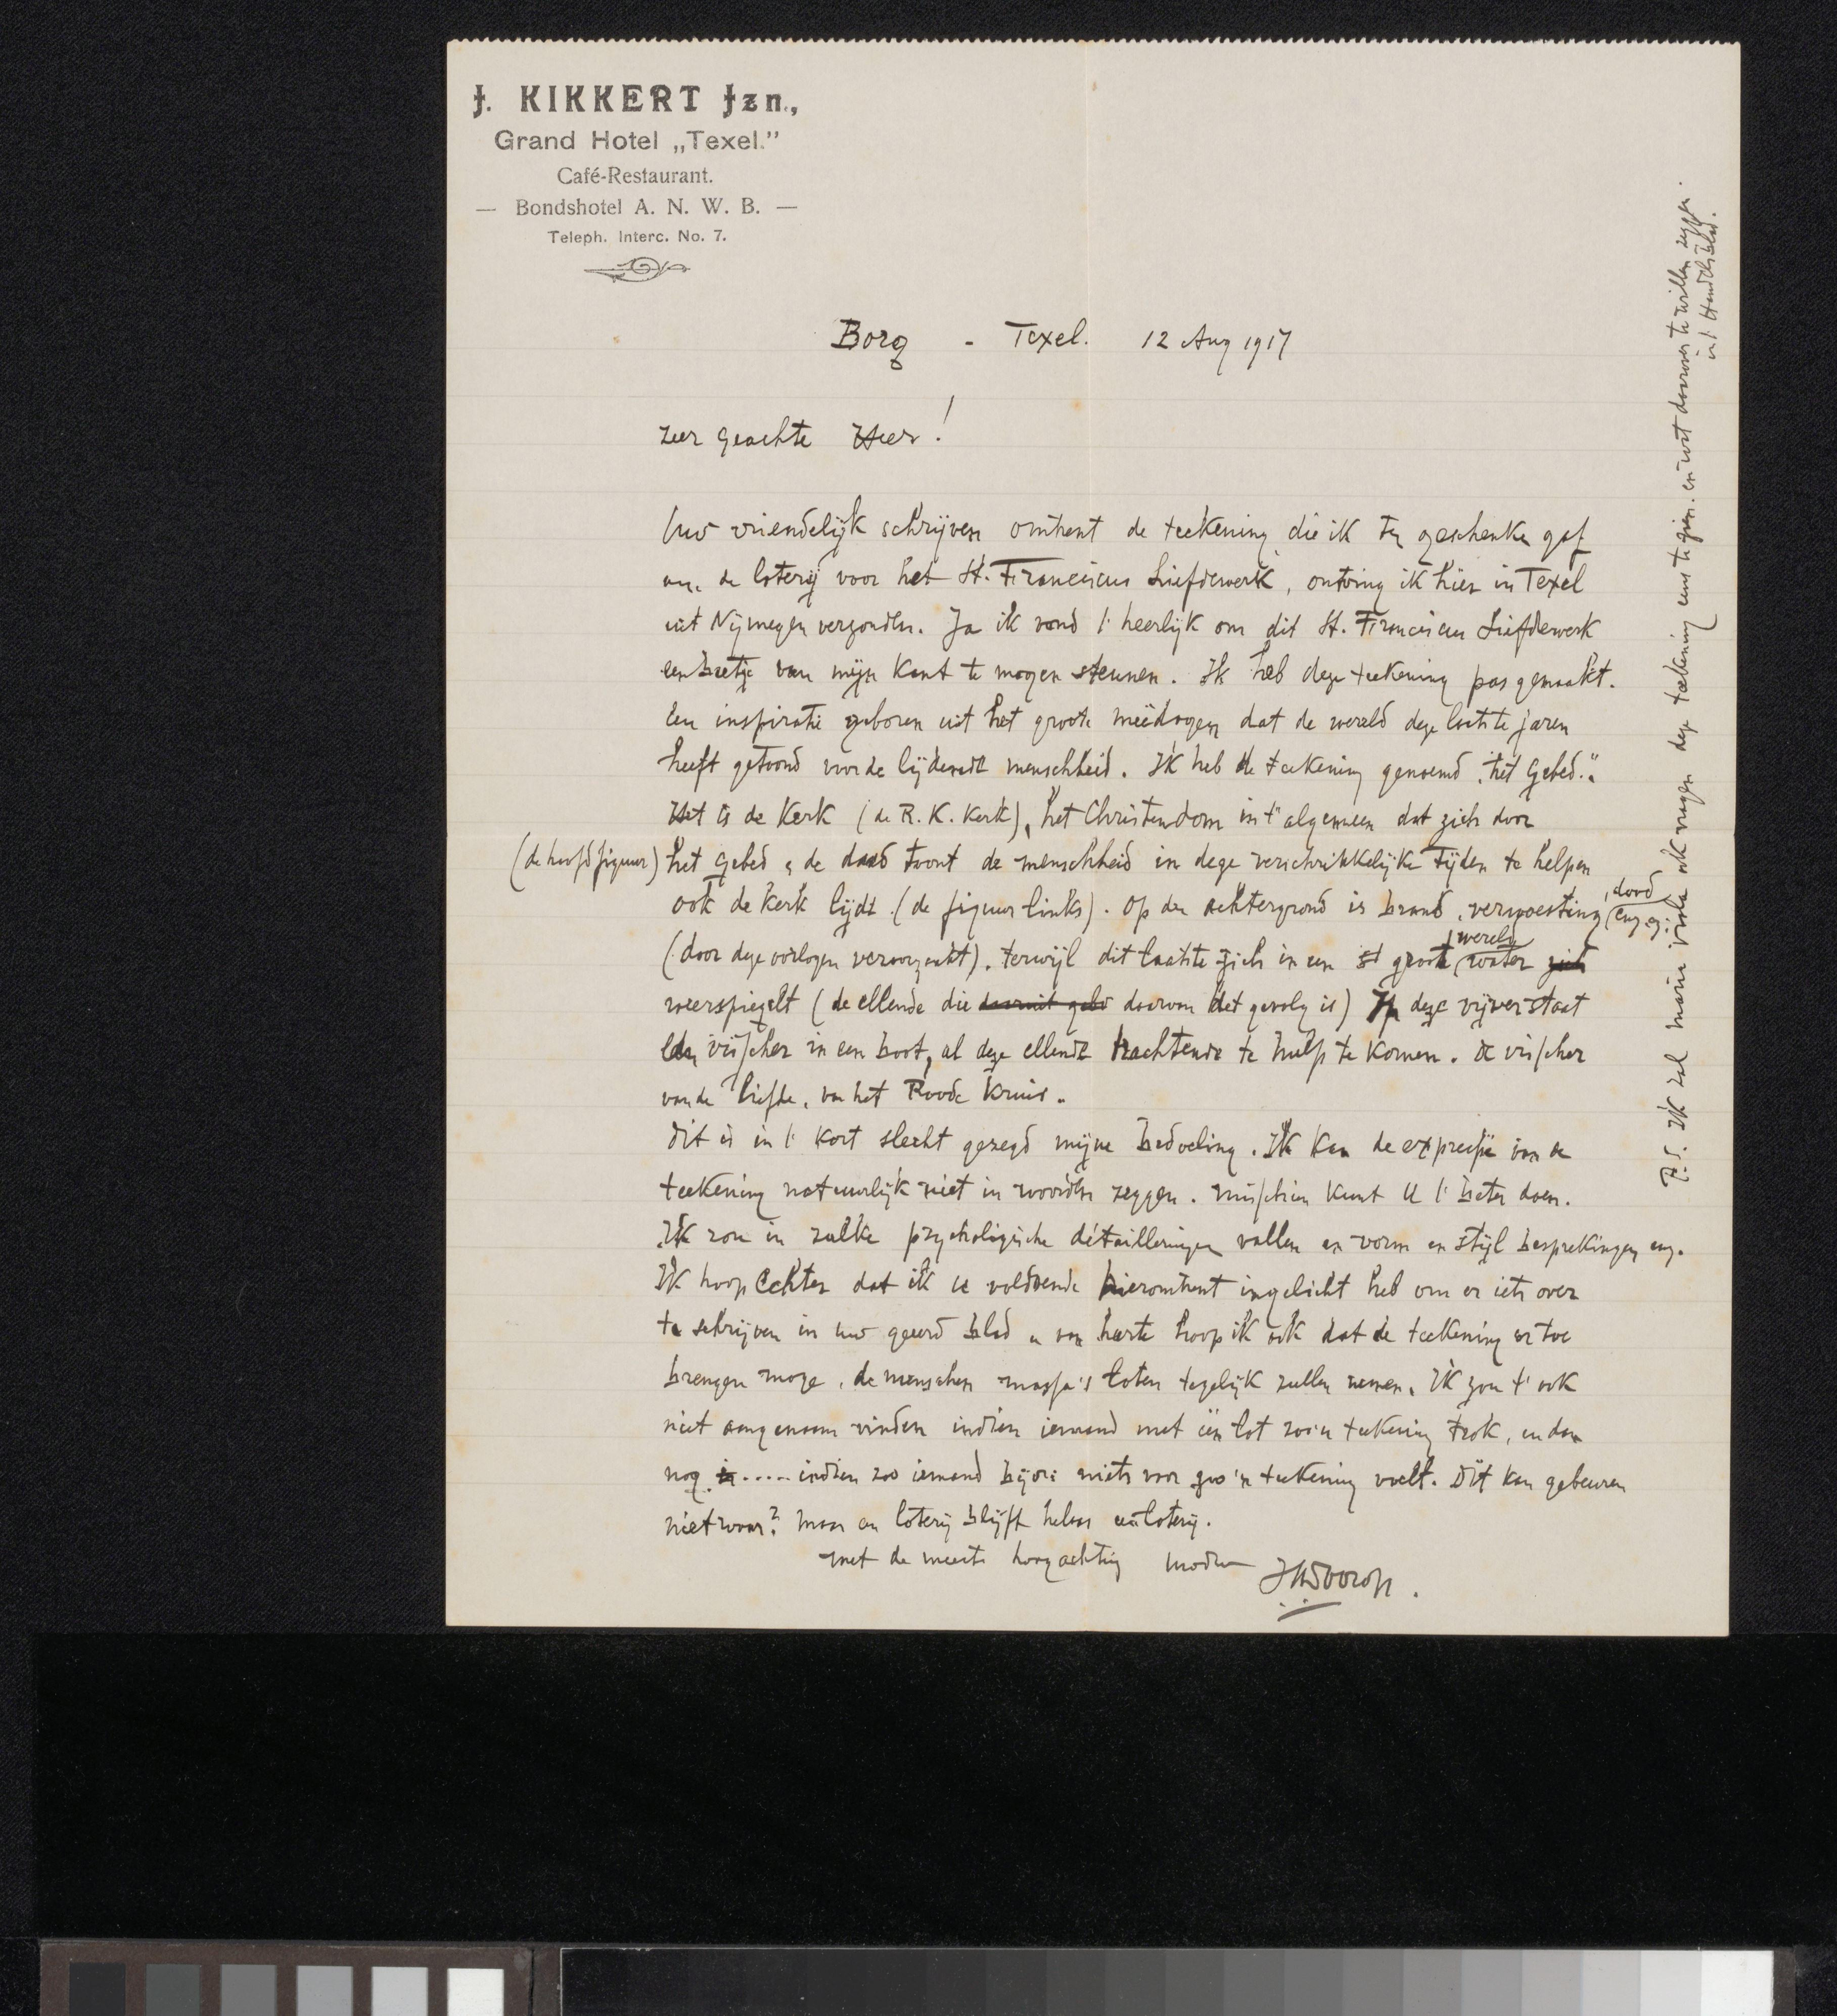 J. KIKKERT Jzn.,
Grand Hotel „Texel.”
Café-Restaurant.
— Bondshotel A. N. W. B. —
Teleph. Interc. No. 7.
Borg - Texel. 12 Aug 1917
zeer geachte Heer!
Uw vriendelijk schrijven omtrent de teekening die ik ten geschenke gaf
aan de loterij voor het St. Franciscus Liefdewerk, ontving ik hier in Texel
uit Nijmegen verzonden. Ja ik vond 't heerlijk om dit St. Franciscus Liefdewerk
een beetje van mijn kant te mogen steunen. Ik heb deze teekening pas gemaakt.
Een inspiratie geboren uit het groote meêdogen dat de wereld deze laatste jaren
heeft getoond voor de lijdende menschheid. Ik heb de teekening genoemd „het Gebed.”
Het is de Kerk (de R. K. Kerk), het Christendom in 't algemeen dat zich door
(de hoofdfiguur) het gebed & de daad toont de menschheid in deze verschrikkelijke tijden te helpen
ook de Kerk lijdt (de figuur links). Op den achtergrond is brand, verwoesting, dood enz. enz.
(door deze oorlogen veroorzaakt). terwijl dit laatste zich in een st groot wereld water zich
weerspiegelt (de ellende die daaruit gebo daarvan het gevolg is) In deze vijver staat
een visscher in een boot, al deze ellende trachtende te hulp te komen. de visscher
van de liefde, van het Roode Kruis.
Dit is in 't kort slecht gezegd mijne bedoeling. Ik kan de expressie van de
teekening natuurlijk niet in woorden zeggen. misschien kunt U 't beter doen.
Ik zou in zulke psychologische détailleringen vallen en vorm en stijl besprekingen enz.
Ik hoop echter dat ik U voldoende hieromtrent ingelicht heb om er iets over
te schrijven in uw geëerd blad & van harte hoop ik ook dat de teekening er toe
brengen moge, de menschen massa's loten tegelijk zullen nemen. Ik zou 't ook
niet aangenaam vinden indien iemand met één lot zoo'n teekening trok, en dan
nog is..... indien zoo iemand bijv: niets voor zoo'n teekening voelt. Dit kan gebeuren
nietwaar? maar een loterij blijft helaas een loterij.
met de meeste hoogachting JThToorop.
P.S. Ik zal maria viola ook vragen deze teekening eens te zien. en wat daarover te willen zeggen.
in 't Handelsblad.